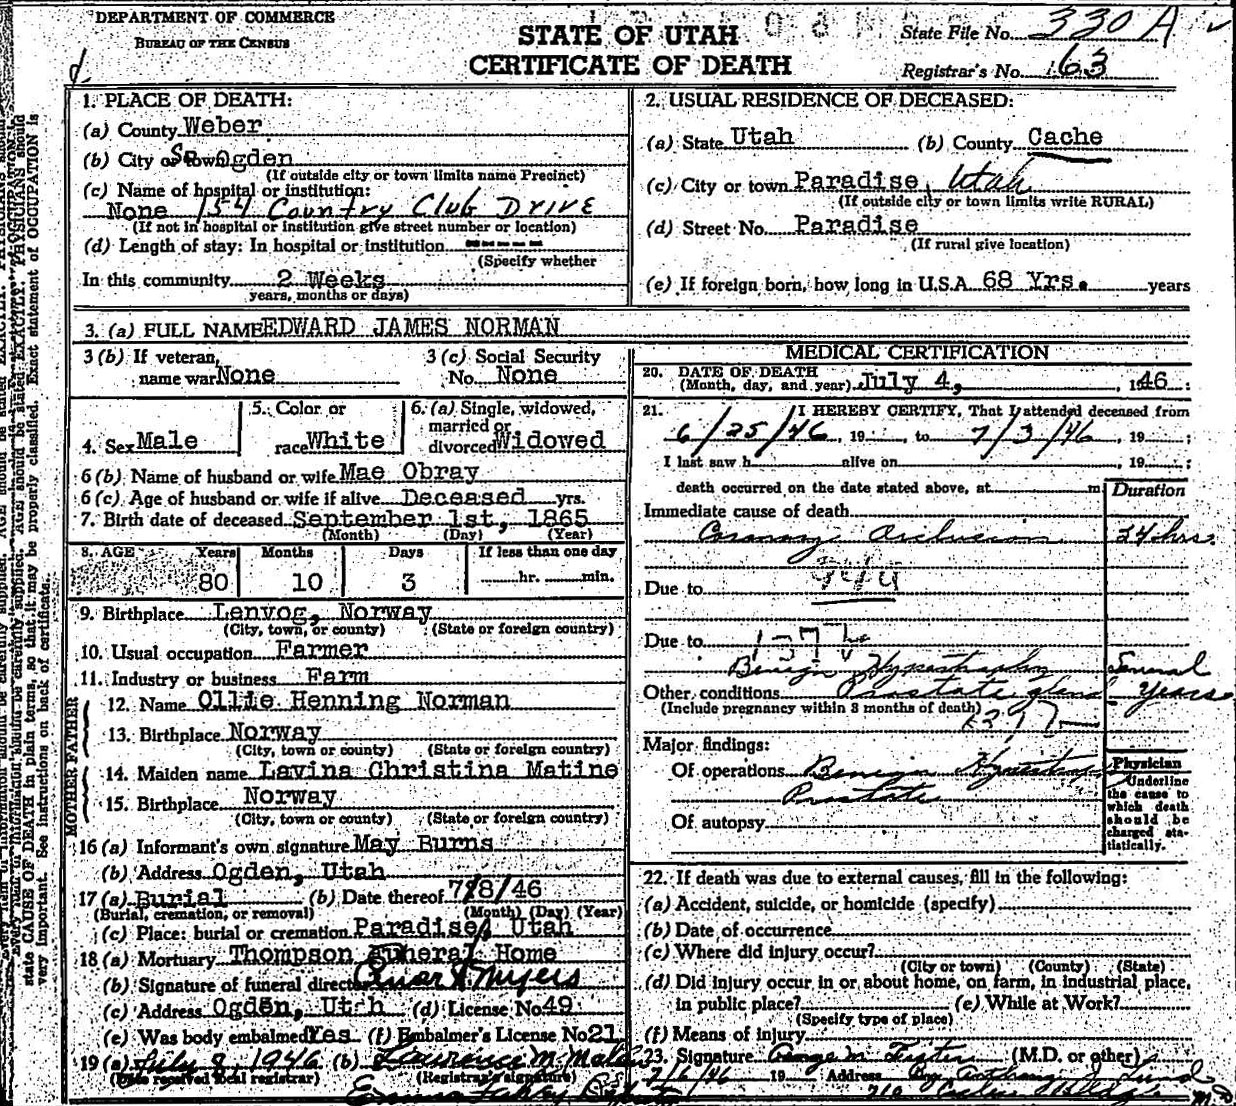 DEPARTMENT OF COMMERCE
BUREAU OF THE CENSUS
STATE OF UTAH
CERTIFICATE OF DEATH
State File No. 330 A
Registrar's No. 63
1. PLACE OF DEATH:
(a) County Weber
(b) City or town So Ogden
(If outside city or town limits name Precinct)
(c) Name of hospital or institution:
None 154 Country Club Drive
(If not in hospital or institution give street number or location)
(d) Length of stay: In hospital or institution ----
(Specify whether
In this community 2 Weeks
years, months or days)
2. USUAL RESIDENCE OF DECEASED:
(a) State Utah (b) County Cache
(c) City or town Paradise, Utah
(If outside city or town limits write RURAL)
(d) Street No. Paradise
(If rural give location)
(e) If foreign born, how long in U.S.A. 68 Yrs. years
3. (a) FULL NAME EDWARD JAMES NORMAN
3 (b) If veteran, name war None
3 (c) Social Security No. None
4. Sex Male
5. Color or race White
6. (a) Single, widowed, married or divorced Widowed
6 (b) Name of husband or wife Mae Obray
6 (c) Age of husband or wife if alive Deceased yrs.
7. Birth date of deceased September 1st, 1865
(Month) (Day) (Year)
8. AGE Years Months Days If less than one day
80 10 3 hr. min.
9. Birthplace Lenvog, Norway
(City, town, or county) (State or foreign country)
10. Usual occupation Farmer
11. Industry or business Farm
FATHER
12. Name Ollie Henning Norman
13. Birthplace Norway
(City, town or county) (State or foreign country)
MOTHER
14. Maiden name Lavina Christina Matine
15. Birthplace Norway
(City, town or county) (State or foreign country)
16 (a) Informant's own signature May Burns
(b) Address Ogden, Utah
17 (a) Burial (b) Date thereof 7/8/46
(Burial, cremation, or removal) (Month) (Day) (Year)
(c) Place: burial or cremation Paradise, Utah
18 (a) Mortuary Thompson Funeral Home
(b) Signature of funeral director Myers
(c) Address Ogden, Utah (d) License No. 49
(e) Was body embalmed Yes (f) Embalmer's License No. 21
19 (a) July 8, 1946 (b) Lawrence M. Malan
(Date received local registrar) (Registrar's signature)
MEDICAL CERTIFICATION
20. DATE OF DEATH
(Month, day, and year) July 4, 1946
21. I HEREBY CERTIFY, That I attended deceased from
6/25/46, 19 , to 7/3/46, 19 ;
I last saw h alive on , 19 ;
death occurred on the date stated above, at m
Duration
Immediate cause of death
Coronary Occlusion 24 hrs.
Due to
Due to
Benign Hypertrophy Several
Other conditions Prostate gland Years
(Include pregnancy within 3 months of death)
Major findings:
Of operations Benign Hypertrophy
Prostate
Of autopsy
Physician
Underline the cause to which death should be charged statistically.
22. If death was due to external causes, fill in the following:
(a) Accident, suicide, or homicide (specify)
(b) Date of occurrence
(c) Where did injury occur?
(City or town) (County) (State)
(d) Did injury occur in or about home, on farm, in industrial place,
in public place? (e) While at Work?
(Specify type of place)
(f) Means of injury
23. Signature George M. (M.D. or other)
7/6/46 19 Address